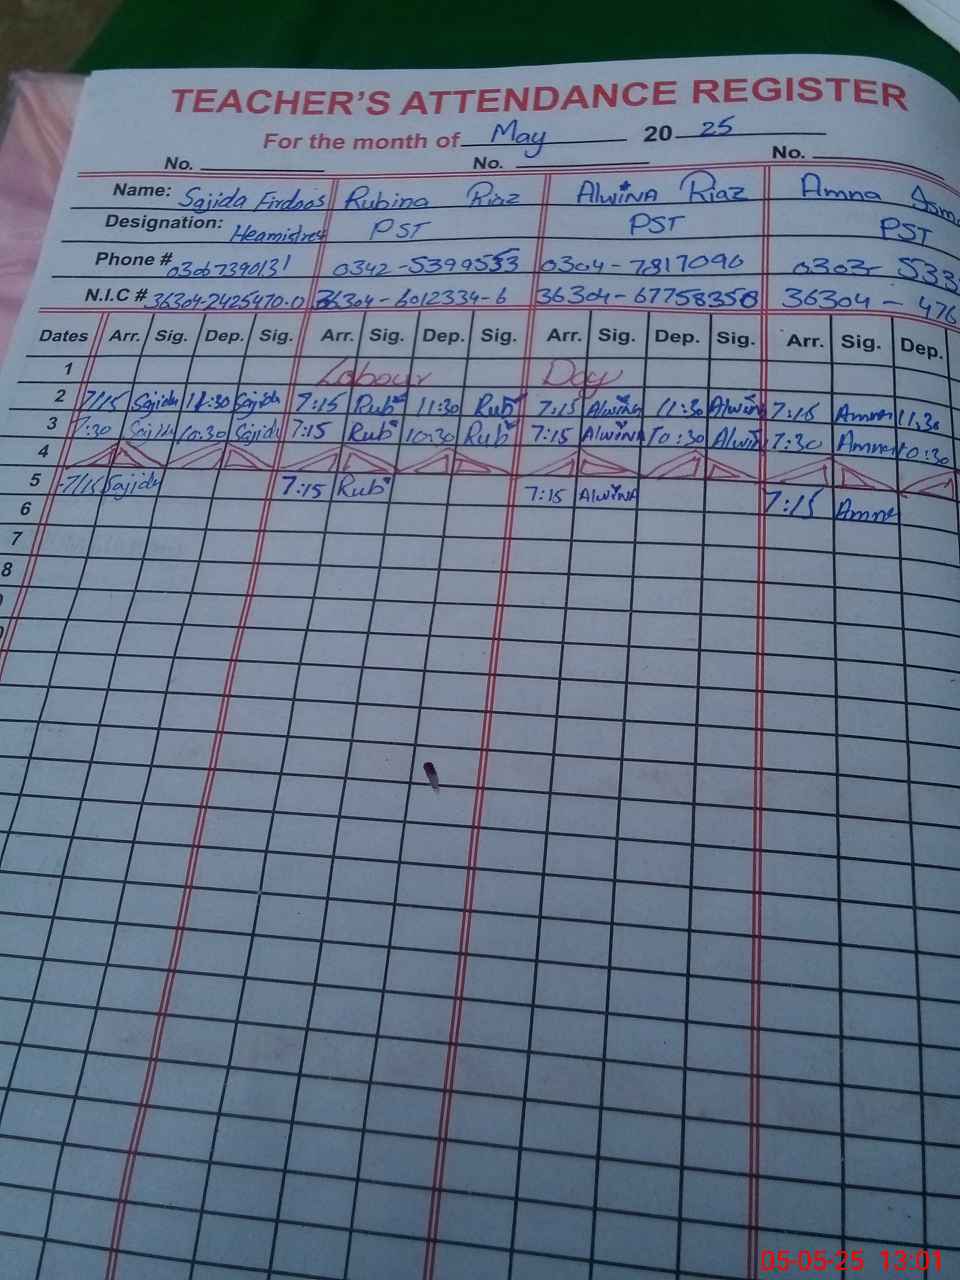 TEACHER'S ATTENDANCE REGISTER
For the month of May 2025
No. No. No.
Name: Sajida Firdoos Rubina Riaz Alwina Riaz Amna
Designation: PST PST PST
Phone # 03067390131 0342-5399553 0304-7817090 0303- 533
N.I.C # 36304-2425470-0 36304-6012334-6 36304-67758358 36304-476
Dates Arr. Sig. Dep. Sig. Arr. Sig. Dep. Sig. Arr. Sig. Dep. Sig. Arr. Sig. Dep.
1 Labour Day
2 7/15 Sajida 11:30 Sajida 7:15 Rub 11:30 Rub 7:15 Alwina 11:30 Alwina 7:15 Amna 11.30
3 7:30 Sajida 10:30 Sajida 7:15 Rub 10:30 Rub 7:15 Alwina 10:30 Alwina 7:30 Amna 10:30
4
5 7/15 Sajida 7:15 Rub 7:15 Alwina 7:15 Amna
6
7
8
05-05-25 13:01